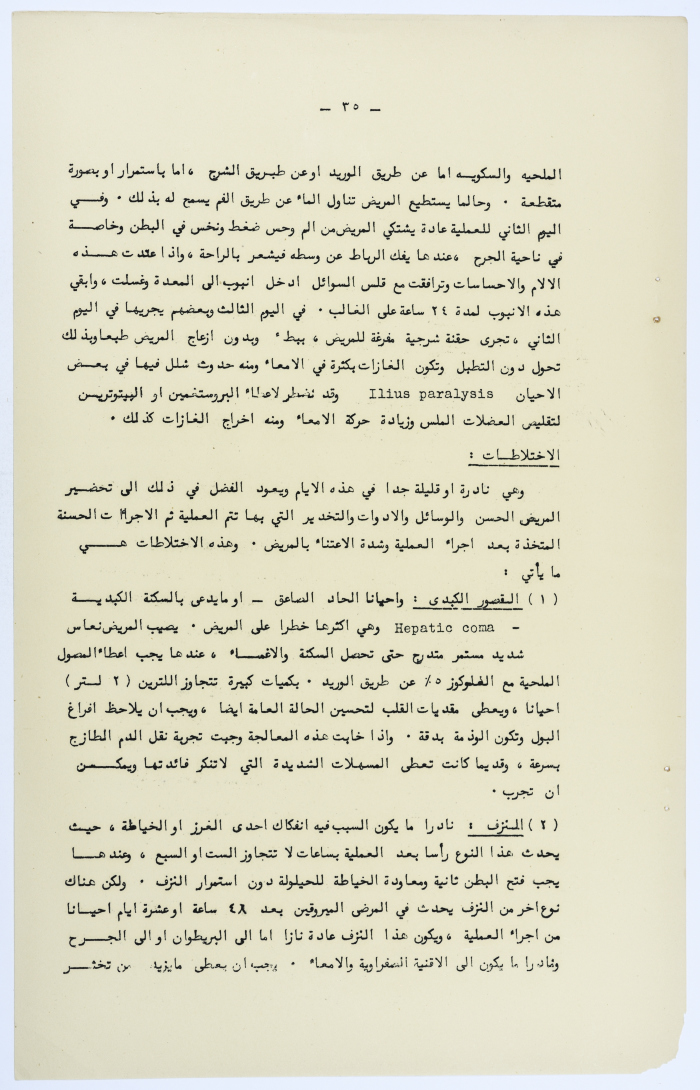 – ٣٥ –
الملحيه والسكويـــه اما عن طريق الوريد اوعن طبريق الشرج ، اما باستمرار اوبصورة
متقطعة ٠ وحالما يستطيع المريض تناول الماء عن طريق الفم يسمح له بذلك ٠ وفـــي
اليوم الثاني للعملية عادة يشتكي المريض من الم وحس ضغط ونخس في البطن وخاصــة
في ناحية الجرح ، عندها يفك الرباط عن وسطه فيشعر بالراحة ، واذا عندت هـــذه
الالام والاحساسات وترافقت مع قلس السوائل ادخل انبوب الى المعدة وغسلت ، وابقي
هذه الانبوب لمدة ٢٤ ساعة على الغالب ٠ في اليوم الثالث وبعضهم يجريها في اليوم
الثاني ، تجرى حقنة شرجية مفرغة للمريض ، ببطء وبدون ازعاج المريض طبعا وبذلك
تحول دون التطبل وتكون الغازات بكثرة في الامعاء ومنه حدوث شلل فيها في بعــض
الاحيان Ilius paralysis وقد نضطر لاعطاء البروستغمين او البيتوتريــن
لتقليص العضلات الملس وزيادة حركة الامعاء ومنه اخراج الغازات كذلك ٠
الاختلاطــات :
وهي نادرة او قليلة جدا في هذه الايام ويعود الفضل في ذلك الى تحضير
المريض الحسن والوسائل والادوات والتخدير التي بها تتم العملية ثم الاجراءات الحسنة
المتخذة بعد اجراء العملية وشدة الاعتناء بالمريض ٠ وهذه الاختلاطات هـــي
ما يأتي :
(١) القصور الكبدى : واحيانا الحاد الصاعق – او مايدعى بالسكتة الكبديـــة
Hepatic coma – وهي اكثرها خطرا على المريض ٠ يصيب المريض نعاس
شديد مستمر متدرج حتى تحصل السكتة والاغمـــاء ، عندها يجب اعطاء المصول
الملحية مع الغلوكوز ٥٪ عن طريق الوريد ٠ بكميات كبيرة تتجاوز اللترين (٢ لتر)
احيانا ، ويعطى مقديات القلب لتحسين الحالة العامة ايضا ، ويجب ان يلاحظ افراغ
البول وتكون الوذمة بدقة ٠ واذا خابت هذه المعالجة وجبت تجربة نقل الدم الطازج
بسرعة ، وقديما كانت تعطى المسهلات الشديدة التي لاتنكر فائدتها ويمكـــن
ان تجرب ٠
(٢) النزف : نادرا ما يكون السبب فيه انفكاك احدى الغرز او الخياطة ، حيــث
يحدث هذا النوع رأسا بعد العملية بساعات لا تتجاوز الست او السبع ، وعندهـــا
يجب فتح البطن ثانية ومعاودة الخياطة للحيلولة دون استمرار النزف ٠ ولكن هناك
نوع اخر من النزف يحدث في المرضى الميروقين بعد ٤٨ ساعة او عشرة ايام احيــانا
من اجراء العملية ، ويكون هذا النزف عادة نازا اما الى البريطوان او الى الجــرح
ونادرا ما يكون الى الاقنية الصفراوية والامعاء ٠ يجب ان يعطى مايزيد من تخثــر